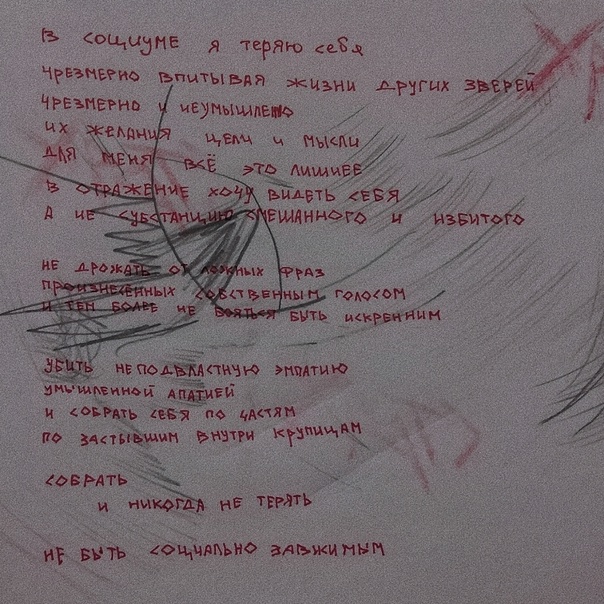 В СОЦИУМЕ Я ТЕРЯЮ СЕБЯ
ЧРЕЗМЕРНО ВПИТЫВАЯ ЖИЗНИ ДРУГИХ ЗВЕРЕЙ
ЧРЕЗМЕРНО И НЕУМЫШЛЕНО
ИХ ЖЕЛАНИЯ ЦЕЛИ И МЫСЛИ
ДЛЯ МЕНЯ ВСЁ ЭТО ЛИШНЕЕ
В ОТРАЖЕНИЕ ХОЧУ ВИДЕТЬ СЕБЯ
А НЕ СУБСТАНЦИЮ СМЕШАННОГО И ИЗБИТОГО
НЕ ДРОЖАТЬ ОТ ЛОЖНЫХ ФРАЗ
ПРОИЗНЕСЕННЫХ СОБСТВЕННЫМ ГОЛОСОМ
И ТЕМ БОЛЕЕ НЕ БОЯТЬСЯ БЫТЬ ИСКРЕННИМ
УБИТЬ НЕПОДВЛАСТНУЮ ЭМПАТИЮ
УМЫШЛЕННОЙ АПАТИЕЙ
И СОБРАТЬ СЕБЯ ПО ЧАСТЯМ
ПО ЗАСТЫВШИМ ВНУТРИ КРУПИЦАМ
СОБРАТЬ
И НИКОГДА НЕ ТЕРЯТЬ
НЕ БЫТЬ СОЦИАЛЬНО ЗАВЖИМЫМ